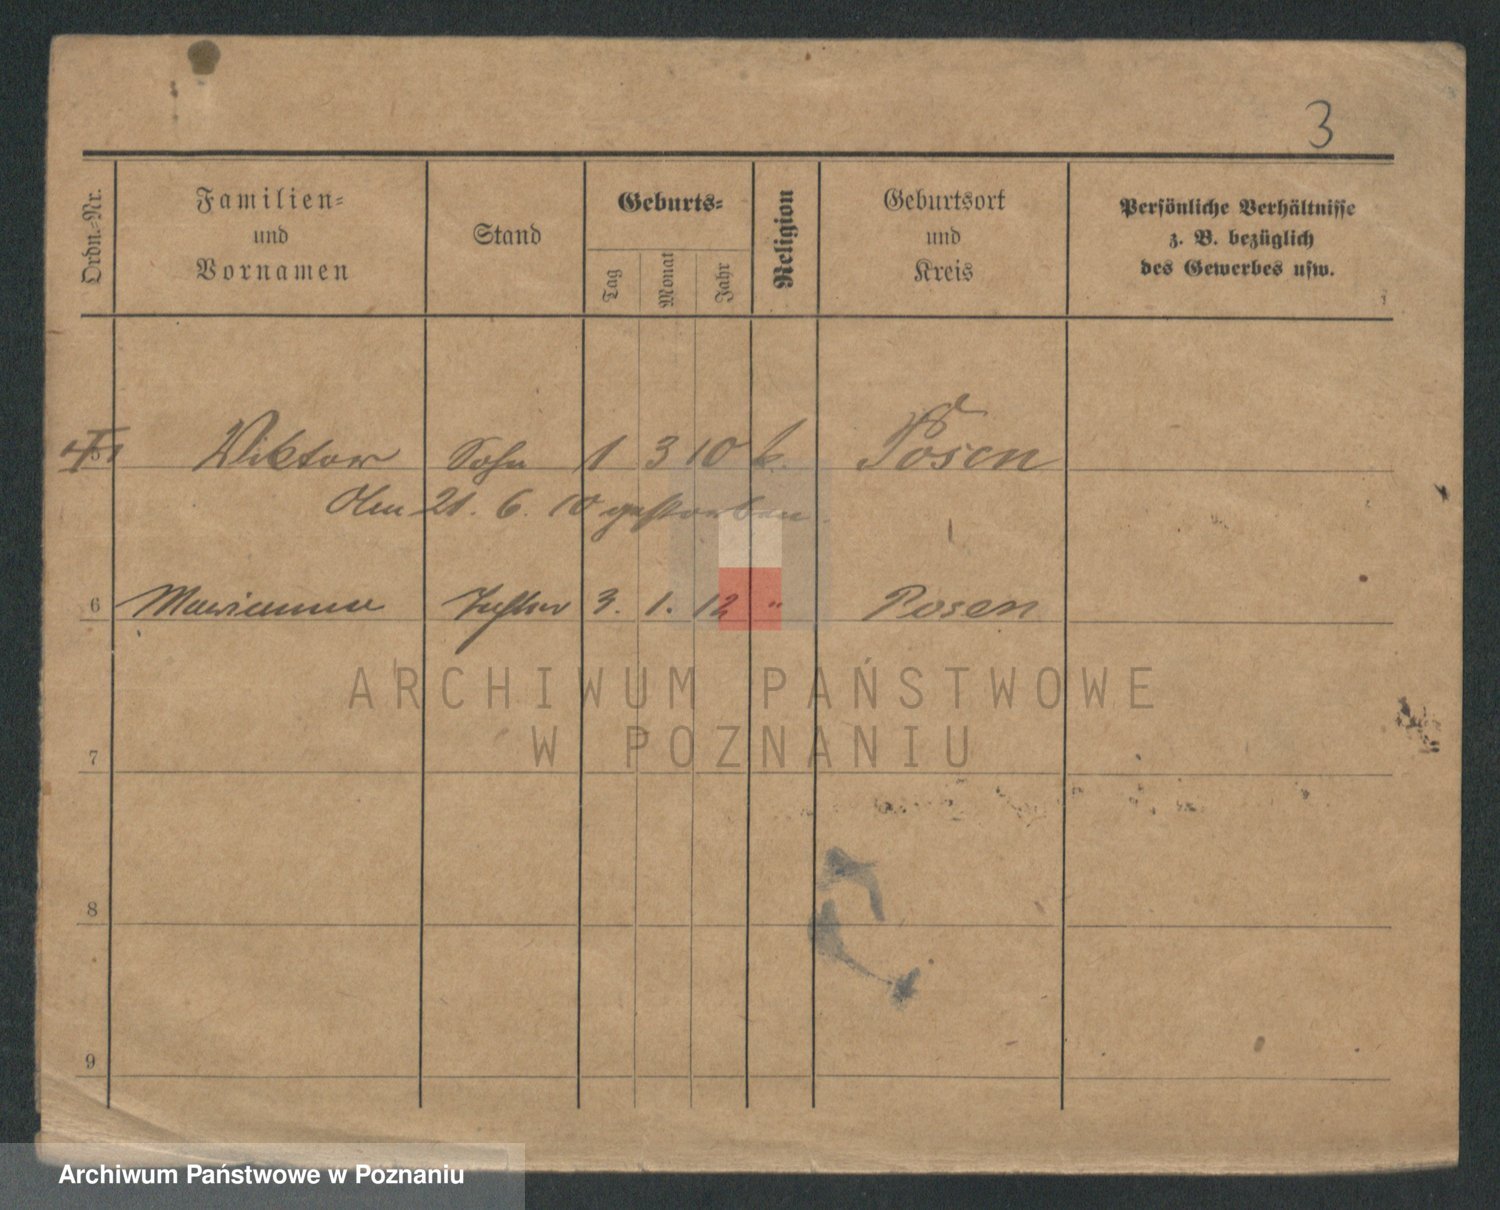 3
Ordn.-Nr.
Familien-
und
Vornamen
Stand
Geburts-
Tag
Monat
Jahr
Religion
Geburtsort
und
Kreis
Persönliche Verhältnisse
z. B. bezüglich
des Gewerbes usw.
Viktor Sohn 1 3 10 k. Posen
Am 21. 6. 10 gestorben.
6 Marianna Tochter 3. 1. 12 " Posen
ARCHIWUM PAŃSTWOWE
W POZNANIU
7
8
9
Archiwum Państwowe w Poznaniu